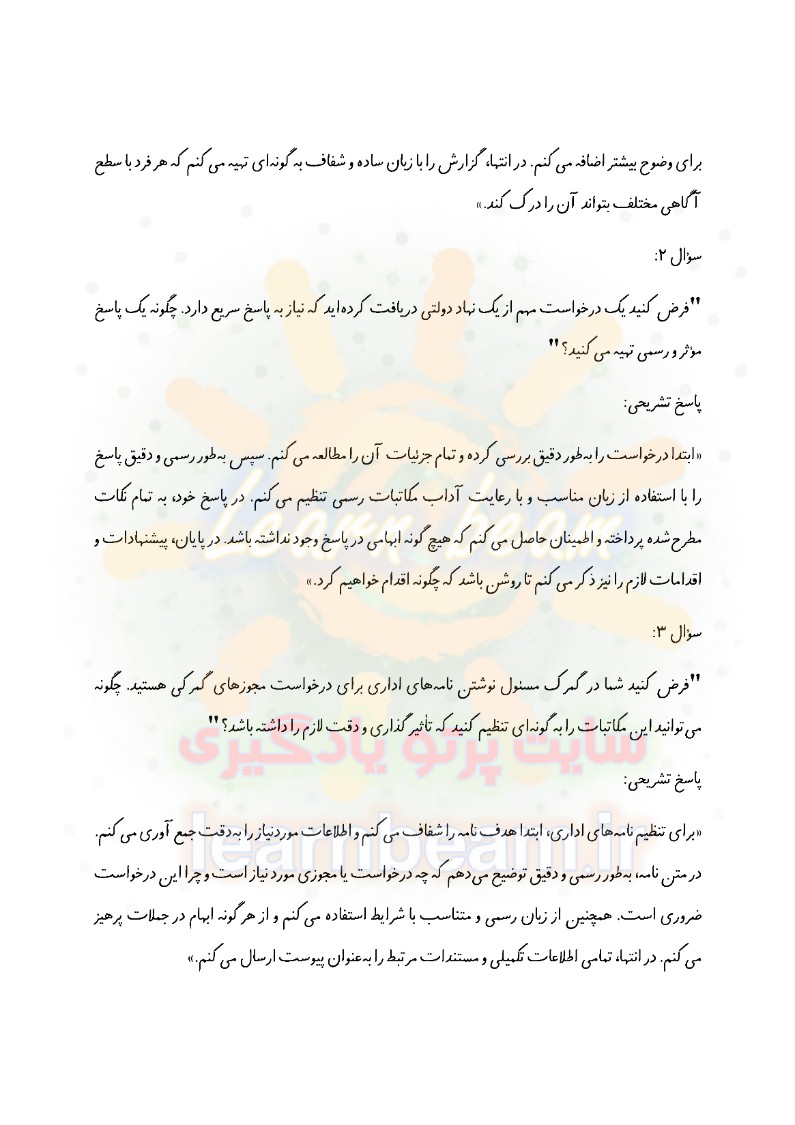 برای وضوح بیشتر اضافه می‌کنم. در انتها، گزارش را با زبان ساده و شفاف به گونه‌ای تهیه می‌کنم که هر فرد با سطح
آگاهی مختلف بتواند آن را درک کند.»
سؤال ۲:
"فرض کنید یک درخواست مهم از یک نهاد دولتی دریافت کرده‌اید که نیاز به پاسخ سریع دارد. چگونه یک پاسخ
مؤثر و رسمی تهیه می‌کنید؟"
پاسخ تشریحی:
«ابتدا درخواست را به‌طور دقیق بررسی کرده و تمام جزئیات آن را مطالعه می‌کنم. سپس به‌طور رسمی و دقیق پاسخ
را با استفاده از زبان مناسب و با رعایت آداب مکاتبات رسمی تنظیم می‌کنم. در پاسخ خود، به تمام نکات
مطرح‌شده پرداخته و اطمینان حاصل می‌کنم که هیچ‌گونه ابهامی در پاسخ وجود نداشته باشد. در پایان، پیشنهادات و
اقدامات لازم را نیز ذکر می‌کنم تا روشن باشد که چگونه اقدام خواهیم کرد.»
سؤال ۳:
"فرض کنید شما در گمرک مسئول نوشتن نامه‌های اداری برای درخواست مجوزهای گمرکی هستید. چگونه
می‌توانید این مکاتبات را به گونه‌ای تنظیم کنید که تأثیرگذاری و دقت لازم را داشته باشد؟"
پاسخ تشریحی:
«برای تنظیم نامه‌های اداری، ابتدا هدف نامه را شفاف می‌کنم و اطلاعات موردنیاز را به‌دقت جمع‌آوری می‌کنم.
در متن نامه، به‌طور رسمی و دقیق توضیح می‌دهم که چه درخواست یا مجوزی مورد نیاز است و چرا این درخواست
ضروری است. همچنین از زبان رسمی و متناسب با شرایط استفاده می‌کنم و از هرگونه ابهام در جملات پرهیز
می‌کنم. در انتها، تمامی اطلاعات تکمیلی و مستندات مرتبط را به‌عنوان پیوست ارسال می‌کنم.»
Learn beam
سایت پرتو یادگیری
learnbeam.ir